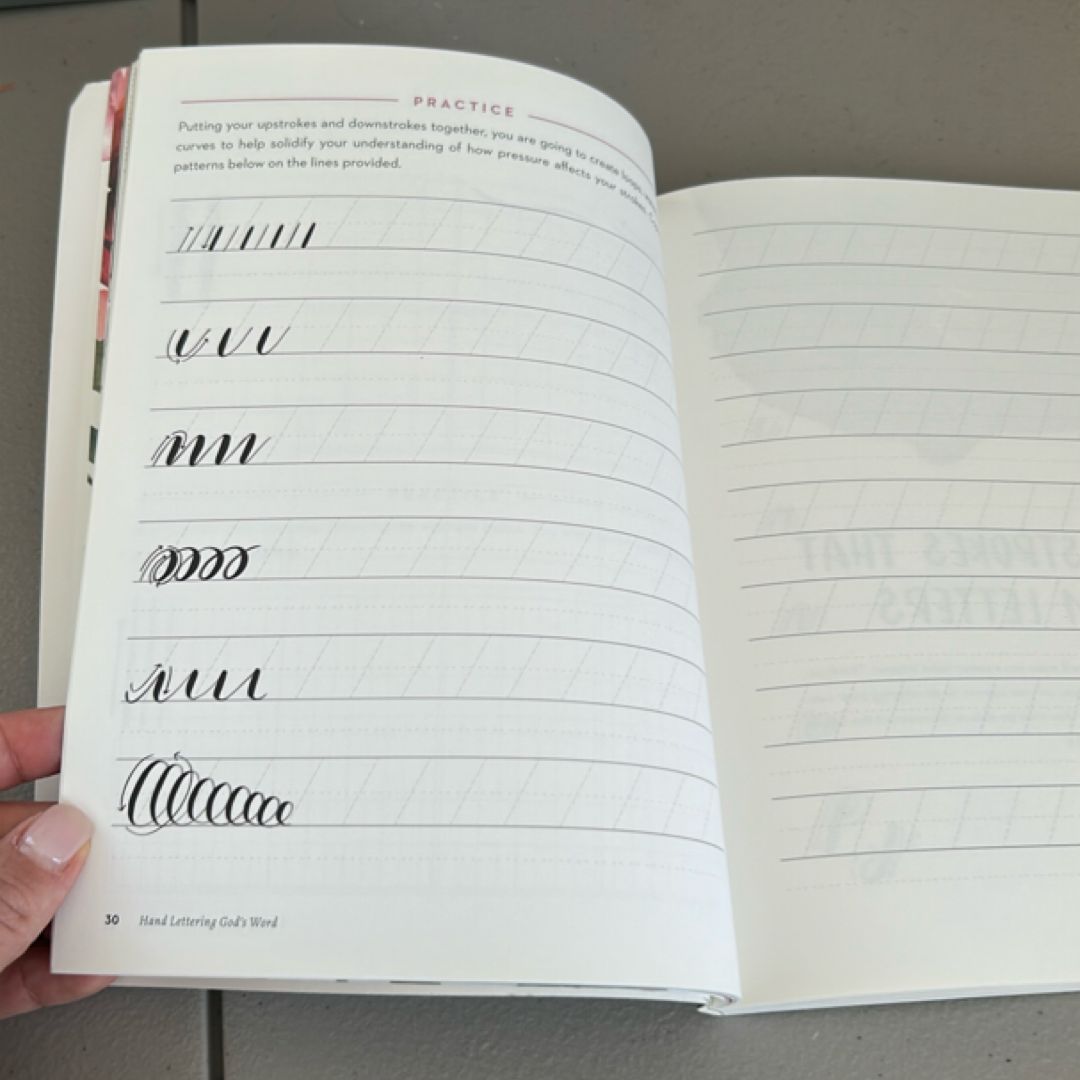 PRACTICE
Putting your upstrokes and downstrokes together, you are going to create loops,
curves to help solidify your understanding of how pressure affects your strokes.
patterns below on the lines provided.
30 Hand Lettering God's Word
STROKES THAT
LETTERS